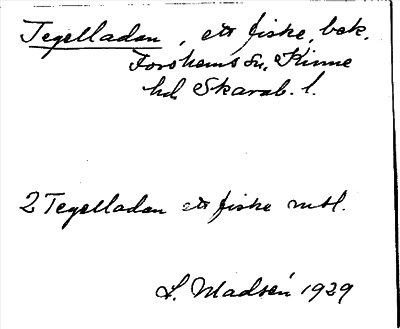 Tegelladan, ett fiske, bek.
Forshems sn. Kinne
hd. Skarab. l.
2 Tegelladan ett fiske mtl.
L. Madsén 1929